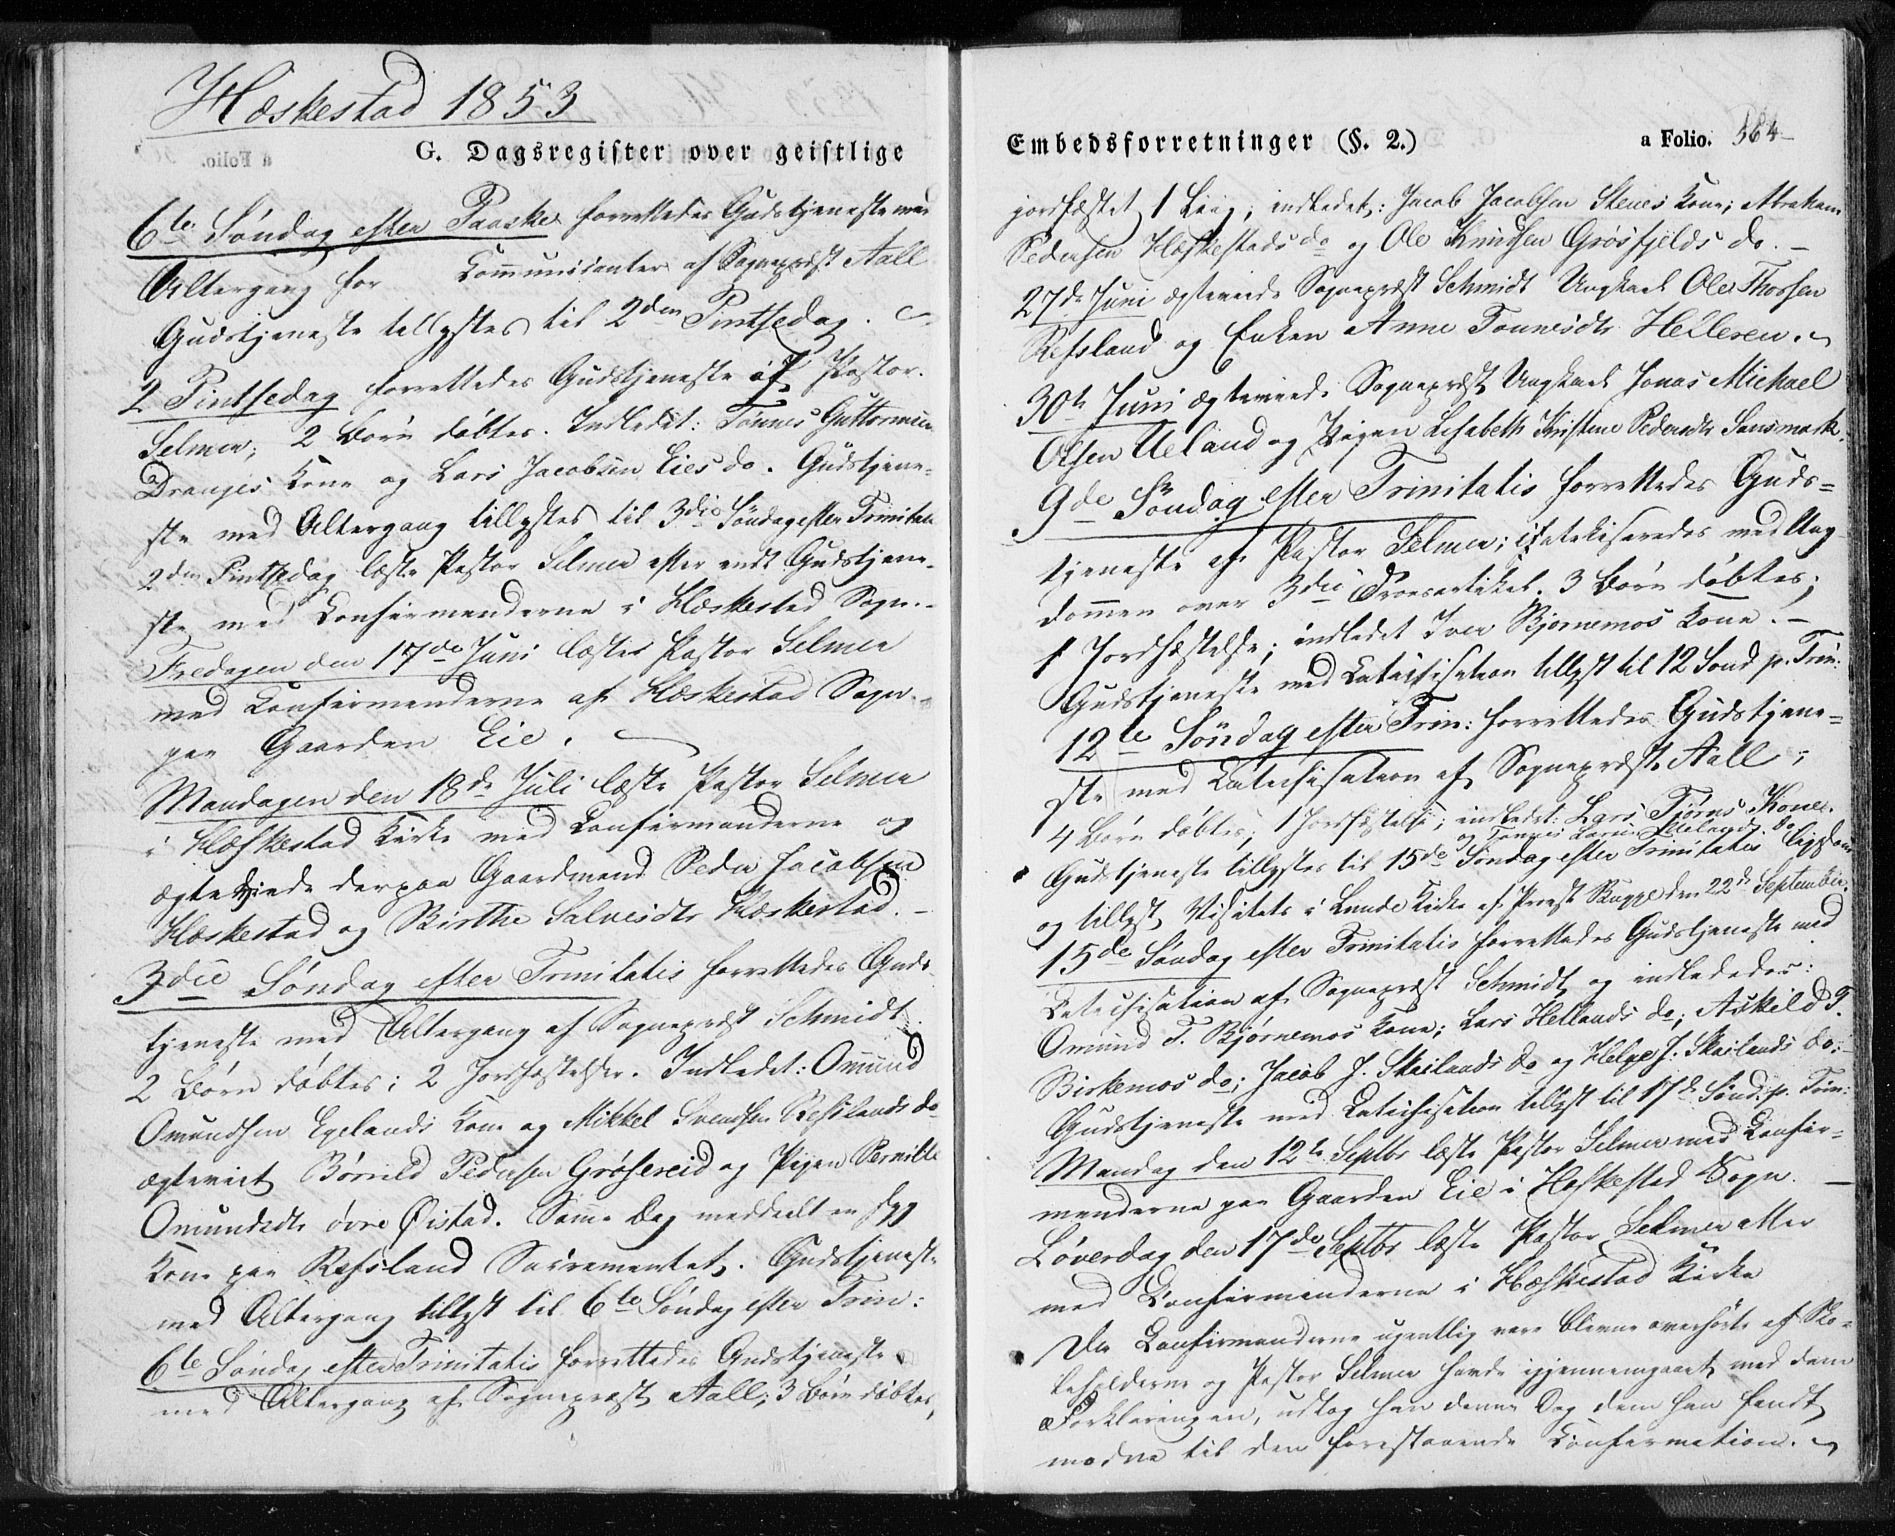 Hæskestad 1853
G. Dagsregister over geistlige
6te Søndag efter Paaske forrettedes Gudstjeneste med
Altergang for Communicanter af Sognepræst Aall
Gudstjeneste tillystes til 2den Pintsedag.
2 Pintsedag forrettedes Gudstjeneste af Pastor
Selmer; 2 Børn døbtes. Indledet: Tønnes Guttormsen
Dranges Kone og Lars Jacobsen Eies do. Gudstjene-
ste med Altergang tillystes til 3die Søndag efter Trinitatis
2den Pintsedag læste Pastor Selmer efter endt Gudstjene-
ste med Confirmanderne i Hæskestad Sogn.
Fredagen den 17de Juni læste Pastor Selmer
med Confirmanderne af Hæskestad Sogn
paa Gaarden Eie.
Mandagen den 18de Juli læste Pastor Selmer
i Hæskestad Kirke med Confirmanderne og
ægteviede derpaa Gaardmand Peder Jacobsen
Hæskestad og Birthe Salvesdtr Hæskestad.
3die Søndag efter Trinitatis forrettedes Guds-
tjeneste med Altergang af Sognepræst Schmidt
2 Børn døbtes; 2 Jordfæstelser. Indledet: Omund
Omundsen Egelands Kone og Mikkel Svendsen Refslands do
ægteviet Børrild Pedersen Grøsereid og Pigen Pernille
Omundsdtr øvre Øistad. Samme Dag meddeelt en syg
Kone paa Refsland Sacramentet. Gudstjeneste
med Altergang tillyst til 6te Søndag efter Trin:
6te Søndag efter Trinitatis forrettedes Gudstjeneste
med Altergang af Sognepræst Aall; 3 Børn døbtes,
Embedsforretninger (§. 2.)
a Folio. 364
jordfæstet 1 Liig; indledet: Jacob Jacobsen Stenes Kone; Abraham
Pedersen Hæskestads do og Ole Knudsen Grøsfjelds do.
27de Juni ægteviede Sognepræst Schmidt Ungkarl Ole Thorsen
Refsland og Enken Anne Tønnesdtr Helleren.
30te Juni ægteviede Sognepræst Ungkarl Jonas Michael
Olsen Ueland og Pigen Lisabeth Kristine Pedersdtr Sansmark.
9de Søndag efter Trinitatis forrettedes Guds-
tjeneste af Pastor Selmer; catekiseredes med Ung-
dommen over 3die Troesartikel. 3 Børn døbtes;
1 Jordfæstelse; indledet Iver Bjørnemos Kone.
Gudstjeneste med Catechisation tillyst til 12 Sønd p. Trin:
12te Søndag efter Trin: forrettedes Gudstjene-
ste med Catechisation af Sognepræst Aall;
4 Børn døbtes; 1 Jordfæstelse; indledet: Lars Tjørns Kone.
og Tønnes Larsen Uelands do
Gudstjeneste tillystes til 15de Søndag efter Trinitatis
og tillyst Visitats i Lunde Kirke af Provst den 22de September.
15de Søndag efter Trinitatis forrettedes Gudstjeneste med
Catechisation af Sognepræst Schmidt og indlededes:
Omund T. Bjørnemos Kone; Lars Hellands do; Askild T.
Birkemos do; Jacob J. Skailands do og Helge J. Skailands do;
Gudstjeneste med Catechisation tillyst til 17de Sønd: p. Trin:
Mandag den 12te Septbr læste Pastor Selmer med Confir-
manderne paa Gaarden Eie i Hæskestad Sogn.
Løverdag den 17de Septbr læste Pastor Selmer atter
med Confirmanderne i Hæskestad Kirke
Da Confirmanderne ugentlig vare blevne overhørte af Sko-
leholderne og Pastor Selmer havde igjennemgaaet med dem
Forklaringen, udtog han denne Dag dem han fandt
modne til den forestaaende Confirmation.